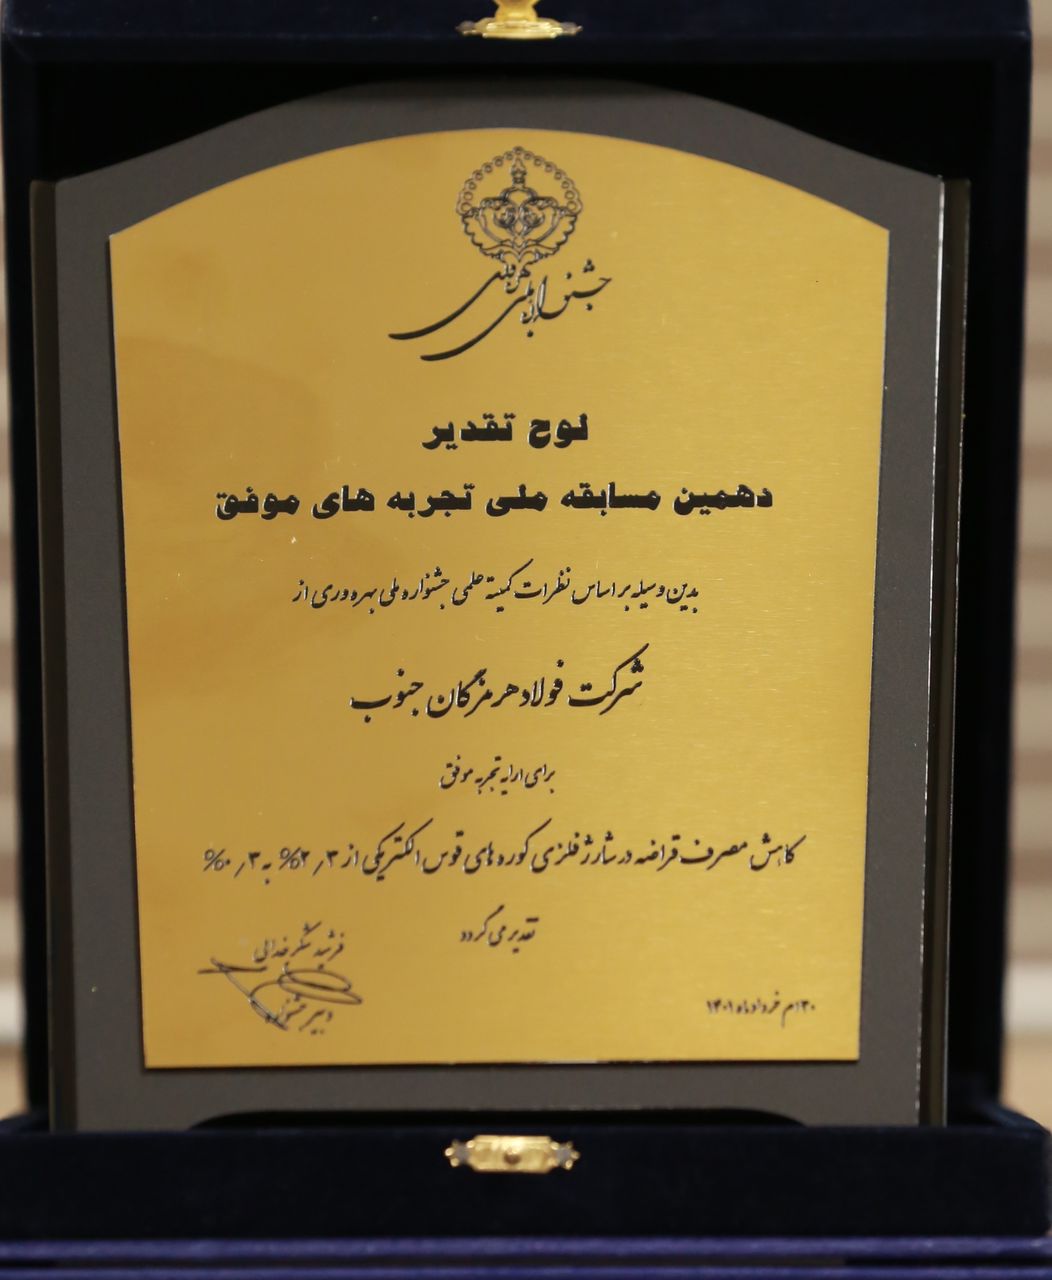 جشنواره ملی بهره وری
لوح تقدیر
دهمین مسابقه ملی تجربه های موفق
بدین وسیله بر اساس نظرات کمیته علمی جشنواره ملی بهره وری از
شرکت فولاد هرمزگان جنوب
برای ارایه تجربه موفق
کاهش مصرف قراضه در شارژ فلزی کوره های قوس الکتریکی از ۲٫۳% به ۰٫۳%
تقدیر می گردد
فرشید شکرخدائی
دبیر جشنواره
۳۰م خردادماه ۱۴۰۱